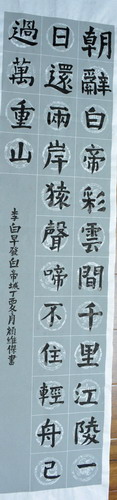 朝辭白帝彩雲間千里江陵一
日還兩岸猿聲啼不住輕舟已
過萬重山
李白早發白帝城丁亥月顏維傑書